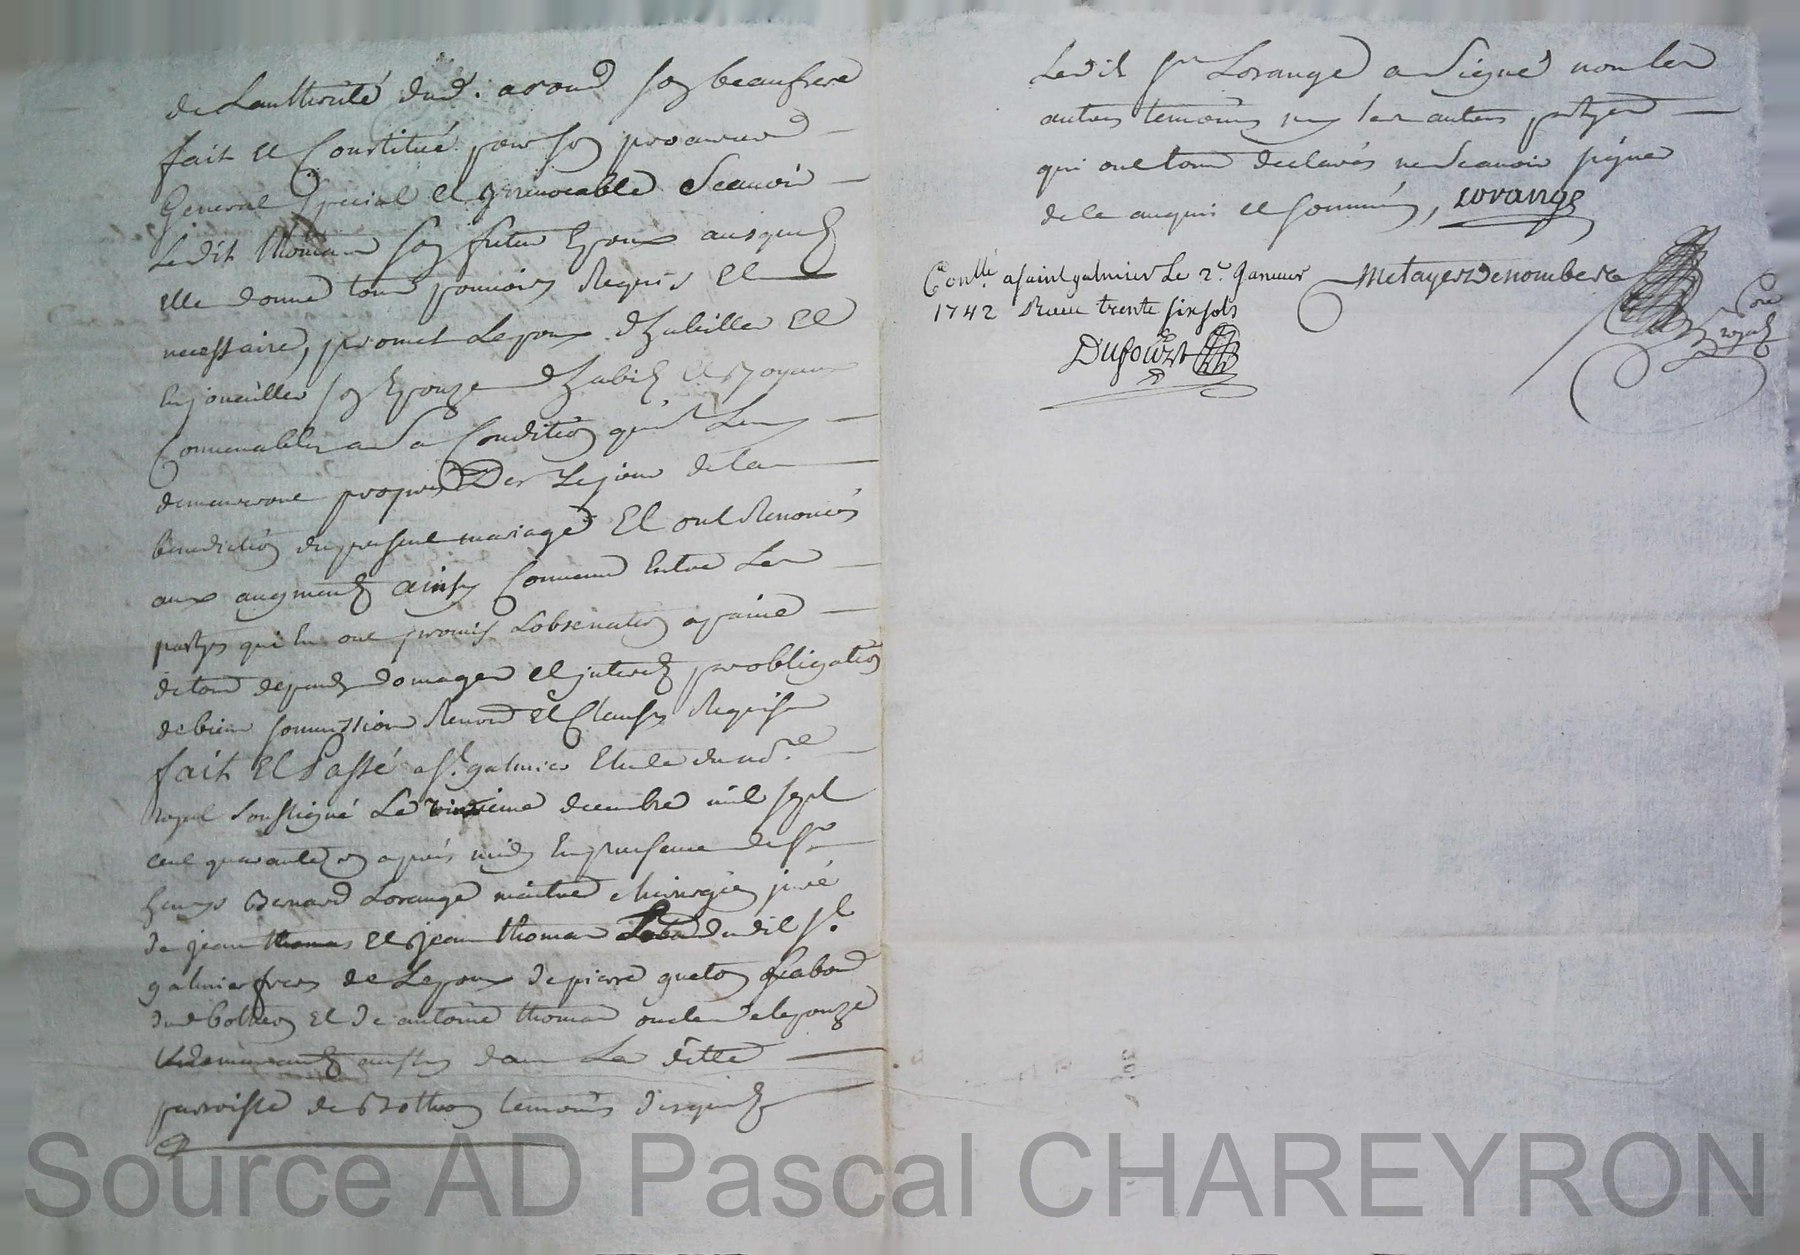 de Lauthorité dud. arond son beaufrere
fait et Constitué pour son procureur
General Special et irrevocable Scauoir
Ledit Thomas son futur Epoux auquel
elle donne tous pouuoirs Requis et
necessaire, promet Lepoux d'habiller et
Enjoueiller son Epouze d'habits et Joyaux
Conuenables a Sa Condition qui Luy
demeureront propres Des Le jour de la
benediction du present mariage Et ont Renoncés
aux augments ainsy Conuenu Entre Les
partyes qui En ont promis Lobseruation a paine
de tous depends domages et interets par obligation
de biens soumission Renon et Clauses Requises
fait Et Passé a St. galmier Etude du no.re
royal Soussigné Le vingtieme decembre mil sept
cent quarante un apres midy En presence de Sr
Bernard Lorange maitre chirurgien juré
de jean thomas et jean thomas dudit St.
galmier freres de Lepoux de pierre queton
dud botheon Et de antoine thomas oncle de lepouze
demeurants aussy dans La ditte
parroisse de Botheon temoins desquels
Ledit Sr Lorange a Signé non les
autres temoins ny les autres partyes
qui ont tous declarés ne Scauoir signer
de ce enquis et sommés, Lorange
Conllé. a saint galmier Le 2e Januier
1742 Receu trente six sols
Metayer Denombera
Nore
royal
Dufourt
Source AD Pascal CHAREYRON